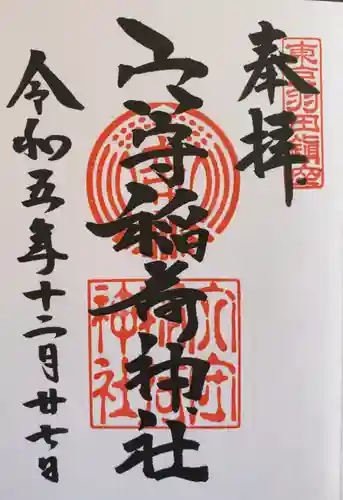 奉拝
東京羽田鎮座
穴守稲荷神社
穴守稲荷神社
令和五年十二月廿七日